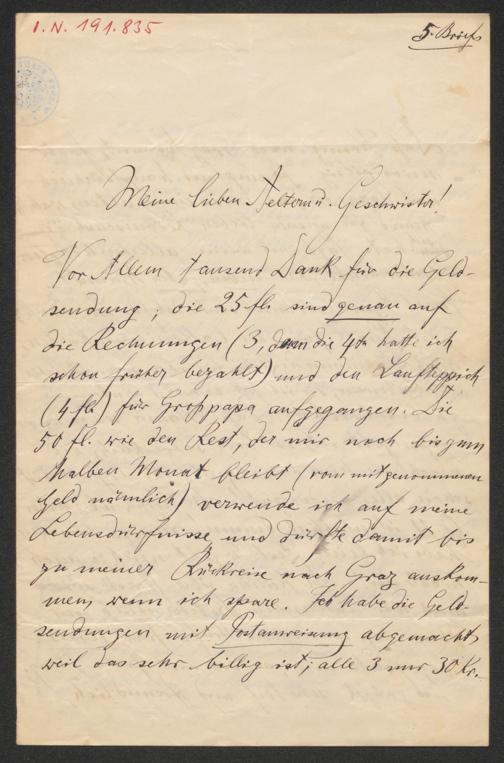 I. N. 191.835
5. Brief
Meine lieben Aeltern u. Geschwister!
Vor Allem tausend Dank für die Geld-
sendung; die 25 fl. sind genau auf
die Rechnungen (3, denn die 4te hatte ich
schon früher bezahlt) und den Laufteppich
(4 fl.) für Großpapa aufgegangen. Die
50 fl. wie den Rest, der mir noch bis zum
halben Monat bleibt (vom mitgenommenen
Geld nämlich) verwende ich auf meine
Lebensdürfnisse und dürfte damit bis
zu meiner Rückreise nach Graz auskom-
men, wenn ich spare. Ich habe die Geld-
sendungen mit Postanweisung abgemacht,
weil das sehr billig ist; alle 3 nur 30 Kr.